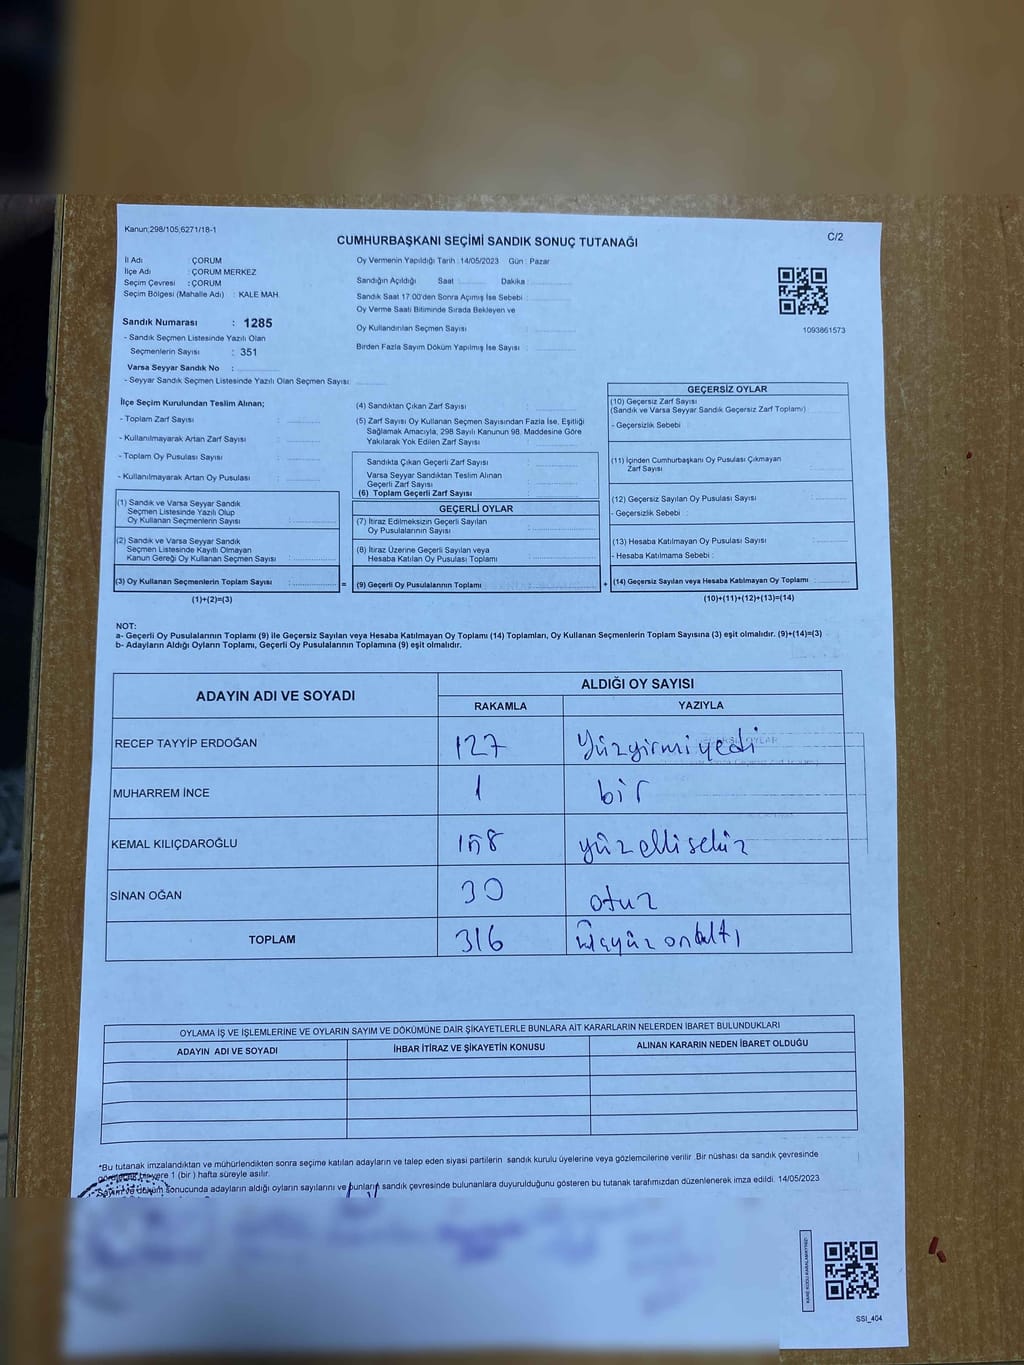 Kanun;298/105,6271/18-1
CUMHURBAŞKANI SEÇİMİ SANDIK SONUÇ TUTANAĞI
C/2
İl Adı : ÇORUM
İlçe Adı : ÇORUM MERKEZ
Seçim Çevresi : ÇORUM
Seçim Bölgesi (Mahalle Adı) : KALE MAH.
Sandık Numarası : 1285
- Sandık Seçmen Listesinde Yazılı Olan
Seçmenlerin Sayısı : 351
Varsa Seyyar Sandık No :
- Seyyar Sandık Seçmen Listesinde Yazılı Olan Seçmen Sayısı:
Oy Vermenin Yapıldığı Tarih : 14/05/2023 Gün : Pazar
Sandığın Açıldığı Saat Dakika
Sandık Saat 17:00'den Sonra Açımış İse Sebebi :
Oy Verme Saati Bitiminde Sırada Bekleyen ve
Oy Kullandırılan Seçmen Sayısı :
Birden Fazla Sayım Döküm Yapılmış İse Sayısı :
1093861573
İlçe Seçim Kurulundan Teslim Alınan;
- Toplam Zarf Sayısı :
- Kullanılmayarak Artan Zarf Sayısı :
- Toplam Oy Pusulası Sayısı :
- Kullanılmayarak Artan Oy Pusulası :
(1) Sandık ve Varsa Seyyar Sandık
Seçmen Listesinde Yazılı Olup
Oy Kullanan Seçmenlerin Sayısı :
(2) Sandık ve Varsa Seyyar Sandık
Seçmen Listesinde Kayıtlı Olmayan
Kanun Gereği Oy Kullanan Seçmen Sayısı :
(3) Oy Kullanan Seçmenlerin Toplam Sayısı :
(1)+(2)=(3)
(4) Sandıktan Çıkan Zarf Sayısı :
(5) Zarf Sayısı Oy Kullanan Seçmen Sayısından Fazla İse, Eşitliği
Sağlamak Amacıyla, 298 Sayılı Kanunun 98. Maddesine Göre
Yakılarak Yok Edilen Zarf Sayısı :
Sandıkta Çıkan Geçerli Zarf Sayısı :
Varsa Seyyar Sandıktan Teslim Alınan
Geçerli Zarf Sayısı :
(6) Toplam Geçerli Zarf Sayısı :
GEÇERLİ OYLAR
(7) İtiraz Edilmeksizin Geçerli Sayılan
Oy Pusulalarının Sayısı :
(8) İtiraz Üzerine Geçerli Sayılan veya
Hesaba Katılan Oy Pusulası Toplamı :
=
(9) Geçerli Oy Pusulalarının Toplamı :
+
GEÇERSİZ OYLAR
(10) Geçersiz Zarf Sayısı
(Sandık ve Varsa Seyyar Sandık Geçersiz Zarf Toplamı)
- Geçersizlik Sebebi :
(11) İçinden Cumhurbaşkanı Oy Pusulası Çıkmayan
Zarf Sayısı
(12) Geçersiz Sayılan Oy Pusulası Sayısı :
- Geçersizlik Sebebi :
(13) Hesaba Katılmayan Oy Pusulası Sayısı :
- Hesaba Katılmama Sebebi :
(14) Geçersiz Sayılan veya Hesaba Katılmayan Oy Toplamı :
(10)+(11)+(12)+(13)=(14)
NOT:
a- Geçerli Oy Pusulalarının Toplamı (9) ile Geçersiz Sayılan veya Hesaba Katılmayan Oy Toplamı (14) Toplamları, Oy Kullanan Seçmenlerin Toplam Sayısına (3) eşit olmalıdır. (9)+(14)=(3)
b- Adayların Aldığı Oyların Toplamı, Geçerli Oy Pusulalarının Toplamına (9) eşit olmalıdır.
ADAYIN ADI VE SOYADI
ALDIĞI OY SAYISI
RAKAMLA YAZIYLA
RECEP TAYYİP ERDOĞAN 127 Yüzyirmiyedi
MUHARREM İNCE 1 bir
KEMAL KILIÇDAROĞLU 158 yüzellisekiz
SİNAN OĞAN 30 otuz
TOPLAM 316 üçyüzonaltı
OYLAMA İŞ VE İŞLEMLERİNE VE OYLARIN SAYIM VE DÖKÜMÜNE DAİR ŞİKAYETLERLE BUNLARA AİT KARARLARIN NELERDEN İBARET BULUNDUKLARI
ADAYIN ADI VE SOYADI İHBAR İTİRAZ VE ŞİKAYETİN KONUSU ALINAN KARARIN NEDEN İBARET OLDUĞU
*Bu tutanak imzalandıktan ve mühürlendikten sonra seçime katılan adayların ve talep eden siyasi partilerin sandık kurulu üyelerine veya gözlemcilerine verilir. Bir nüshası da sandık çevresinde
bir yere 1 (bir ) hafta süreyle asılır.
Sayım ve döküm sonucunda adayların aldığı oyların sayılarını ve bunların sandık çevresinde bulunanlara duyurulduğunu gösteren bu tutanak tarafımızdan düzenlenerek imza edildi. 14/05/2023
SSI_404